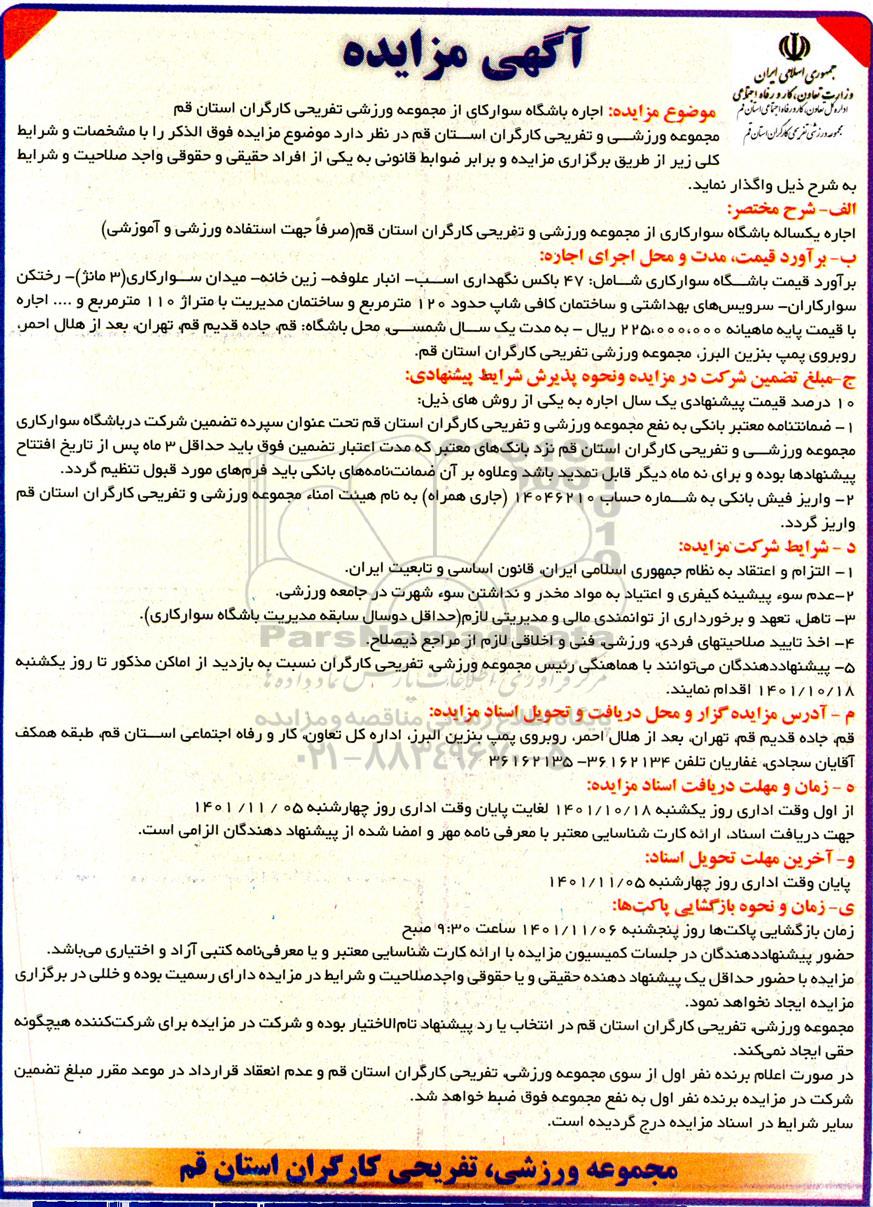 آگهی مزایده
جمهوری اسلامی ایران
وزارت تعاون، کار و رفاه اجتماعی
اداره کل تعاون، کار و رفاه اجتماعی استان قم
مجموعه ورزشی تفریحی کارگران استان قم
موضوع مزایده: اجاره باشگاه سوارکای از مجموعه ورزشی تفریحی کارگران استان قم
مجموعه ورزشی و تفریحی کارگران استان قم در نظر دارد موضوع مزایده فوق الذکر را با مشخصات و شرایط
کلی زیر از طریق برگزاری مزایده و برابر ضوابط قانونی به یکی از افراد حقیقی و حقوقی واجد صلاحیت و شرایط
به شرح ذیل واگذار نماید.
الف- شرح مختصر:
اجاره یکساله باشگاه سوارکاری از مجموعه ورزشی و تفریحی کارگران استان قم(صرفاً جهت استفاده ورزشی و آموزشی)
ب- برآورد قیمت، مدت و محل اجرای اجاره:
برآورد قیمت باشگاه سوارکاری شامل: ۴۷ باکس نگهداری اسب- انبار علوفه- زین خانه- میدان سوارکاری(۳ مانژ)- رختکن
سوارکاران- سرویس‌های بهداشتی و ساختمان کافی شاپ حدود ۱۲۰ مترمربع و ساختمان مدیریت با متراژ ۱۱۰ مترمربع و .... اجاره
با قیمت پایه ماهیانه ۲۲۵,۰۰۰,۰۰۰ ریال - به مدت یک سال شمسی، محل باشگاه: قم، جاده قدیم قم، تهران، بعد از هلال احمر،
روبروی پمپ بنزین البرز، مجموعه ورزشی تفریحی کارگران استان قم.
ج-مبلغ تضمین شرکت در مزایده ونحوه پذیرش شرایط پیشنهادی:
۱۰ درصد قیمت پیشنهادی یک سال اجاره به یکی از روش های ذیل:
۱- ضمانتنامه معتبر بانکی به نفع مجموعه ورزشی و تفریحی کارگران استان قم تحت عنوان سپرده تضمین شرکت درباشگاه سوارکاری
مجموعه ورزشی و تفریحی کارگران استان قم نزد بانک‌های معتبر که مدت اعتبار تضمین فوق باید حداقل ۳ ماه پس از تاریخ افتتاح
پیشنهادها بوده و برای نه ماه دیگر قابل تمدید باشد وعلاوه بر آن ضمانت‌نامه‌های بانکی باید فرم‌های مورد قبول تنظیم گردد.
۲- واریز فیش بانکی به شماره حساب ۱۴۰۴۶۲۱۰ (جاری همراه) به نام هیئت امناء مجموعه ورزشی و تفریحی کارگران استان قم
واریز گردد.
د - شرایط شرکت مزایده:
۱- التزام و اعتقاد به نظام جمهوری اسلامی ایران، قانون اساسی و تابعیت ایران.
۲-عدم سوء پیشینه کیفری و اعتیاد به مواد مخدر و نداشتن سوء شهرت در جامعه ورزشی.
۳- تاهل، تعهد و برخورداری از توانمندی مالی و مدیریتی لازم(حداقل دوسال سابقه مدیریت باشگاه سوارکاری).
ParsNamadData
۴- اخذ تایید صلاحیتهای فردی، ورزشی، فنی و اخلاقی لازم از مراجع ذیصلاح.
مرکز فرآوری اطلاعات پارس نماد داده ها
۵- پیشنهاددهندگان می‌توانند با هماهنگی رئیس مجموعه ورزشی، تفریحی کارگران نسبت به بازدید از اماکن مذکور تا روز یکشنبه
۱۴۰۱/۱۰/۱۸ اقدام نمایند.
م - آدرس مزایده گزار و محل دریافت و تحویل اسناد مزایده:
پایگاه اطلاع رسانی مناقصه و مزایده
قم، جاده قدیم قم، تهران، بعد از هلال احمر، روبروی پمپ بنزین البرز، اداره کل تعاون، کار و رفاه اجتماعی استان قم، طبقه همکف
۰۲۱-۸۸۳۴۹۶۷۰-۵
آقایان سجادی، غفاریان تلفن ۳۶۱۶۲۱۳۴- ۳۶۱۶۲۱۳۵
ه - زمان و مهلت دریافت اسناد مزایده:
از اول وقت اداری روز یکشنبه ۱۴۰۱/۱۰/۱۸ لغایت پایان وقت اداری روز چهارشنبه ۰۵ / ۱۱/ ۱۴۰۱
جهت دریافت اسناد، ارائه کارت شناسایی معتبر با معرفی نامه مهر و امضا شده از پیشنهاد دهندگان الزامی است.
و- آخرین مهلت تحویل اسناد:
پایان وقت اداری روز چهارشنبه ۱۴۰۱/۱۱/۰۵
ی- زمان و نحوه بازگشایی پاکت‌ها:
زمان بازگشایی پاکت‌ها روز پنجشنبه ۱۴۰۱/۱۱/۰۶ ساعت ۹:۳۰ صبح
حضور پیشنهاددهندگان در جلسات کمیسیون مزایده با ارائه کارت شناسایی معتبر و یا معرفی‌نامه کتبی آزاد و اختیاری می‌باشد.
مزایده با حضور حداقل یک پیشنهاد دهنده حقیقی و یا حقوقی واجدصلاحیت و شرایط در مزایده دارای رسمیت بوده و خللی در برگزاری
مزایده ایجاد نخواهد نمود.
مجموعه ورزشی، تفریحی کارگران استان قم در انتخاب یا رد پیشنهاد تام‌الاختیار بوده و شرکت در مزایده برای شرکت‌کننده هیچگونه
حقی ایجاد نمی‌کند.
در صورت اعلام برنده نفر اول از سوی مجموعه ورزشی، تفریحی کارگران استان قم و عدم انعقاد قرارداد در موعد مقرر مبلغ تضمین
شرکت در مزایده برنده نفر اول به نفع مجموعه فوق ضبط خواهد شد.
سایر شرایط در اسناد مزایده درج گردیده است.
مجموعه ورزشی، تفریحی کارگران استان قم